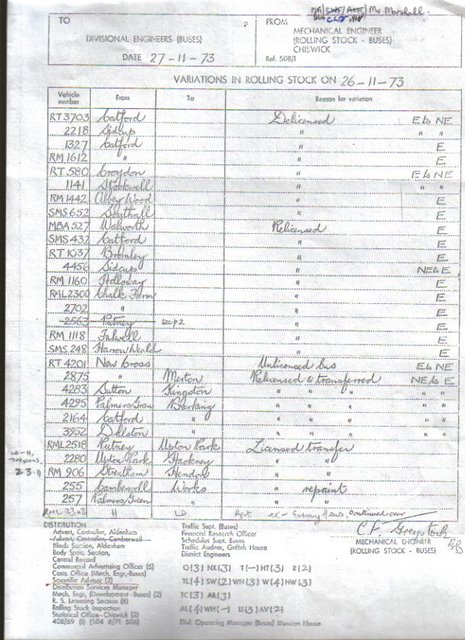 TO
DIVISIONAL ENGINEERS (BUSES)
DATE 27-11-73
FROM
MECHANICAL ENGINEER
(ROLLING STOCK - BUSES)
CHISWICK
Ref. 508/1
VARIATIONS IN ROLLING STOCK ON 26-11-73
Vehicle number From To Reason for variation
RT 3703 Catford Delicensed E to NE
2218 Sidcup " " "
1327 Catford " E
RM 1612 " " E
RT 580 Croydon " E to NE
1141 Stockwell " " "
RM 1442 Abbey Wood " E
SMS 652 Southall " E
MBA 527 Walworth Relicensed E
SMS 437 Catford " E
RT 1037 Bromley " E
4456 Sidcup " NE to E
RM 1160 Holloway " E
RML 2300 Chalk Farm " E
2702 " " E
2563 Putney " E
RM 1118 Fulwell " E
SMS 248 Harrow Weald " E
RT 4201 New Cross Unlicensed bus E to NE
2875 " Merton Relicensed & transferred NE to E
4283 Sutton Kingston " " " "
4295 Palmers Green Barking " " " "
2164 Catford " " " " "
3932 Dalston " " " " "
RML 2518 Putney Upton Park Licensed transfer
2280 Upton Park Hackney " "
RM 906 Streatham Hendon " "
255 Camberwell Works " repaint
257 Palmers Green " " "
DISTRIBUTION
Advert. Controller, Aldenham
Advert. Controller, Camberwell
Blinds Section, Aldenham
Body Spec. Section,
Central Record
Commercial Advertising (6)
Costs Office (Mech. Engr.-Buses)
Scientific Adviser (2)
Distribution Services Manager
Mech. Engr. (Development - Buses) (2)
R. S. Licensing Section (8)
Rolling Stock Inspection
Statistical Office - Chiswick (2)
Traffic Supt. (Buses)
Financial Research Officer
Schedules Supt. Buses
Traffic Auditor, Griffith House
District Engineers
Q(3) NX(3) T(-) HT(3) R(2)
TL(4) SW(2) WN(3) W(4) HW(3)
TC(3) AR(3)
AL(4) WH(-) U(3) AV(2)
Dist. Operating Manager (Buses) Mansion House
MECHANICAL ENGINEER
(ROLLING STOCK - BUSES)